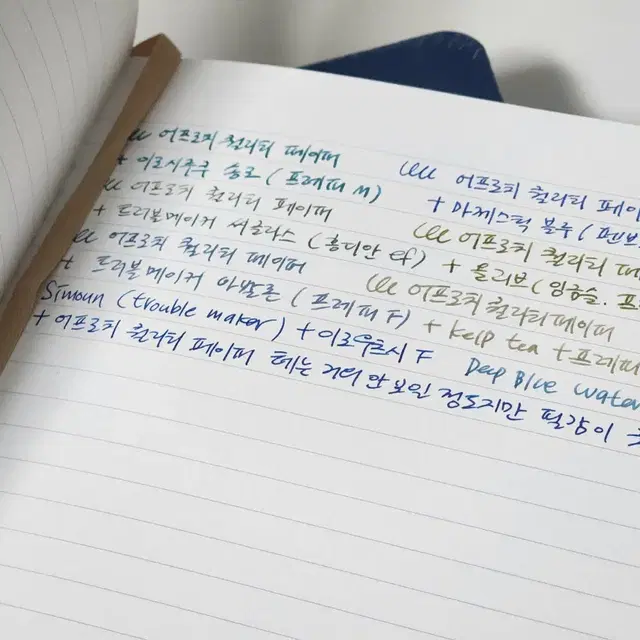 ccc 어프로치 퀄리티 페이퍼
+ 이로시주쿠 송로 (프레피 M)
ccc 어프로치 퀄리티 페이퍼
+ 트러블메이커 써글라스 (홍디안 ef)
ccc 어프로치 퀄리티 페이퍼
+ 트러블메이커 아발론 (프레피 F)
Simoun (trouble maker) + 이로우츠시 F
+ 어프로치 퀄리티 페이퍼 테는 거의 안 보일 정도지만 필감이
ccc 어프로치 퀄리티 페이
+ 마제스틱 블루 (펜보
ccc 어프로치 퀄리티 페
+ 올리브 (잉금슬. 프
ccc 어프로치 퀄리티 페이퍼
+ kelp tea + 프레피
Deep Blue water